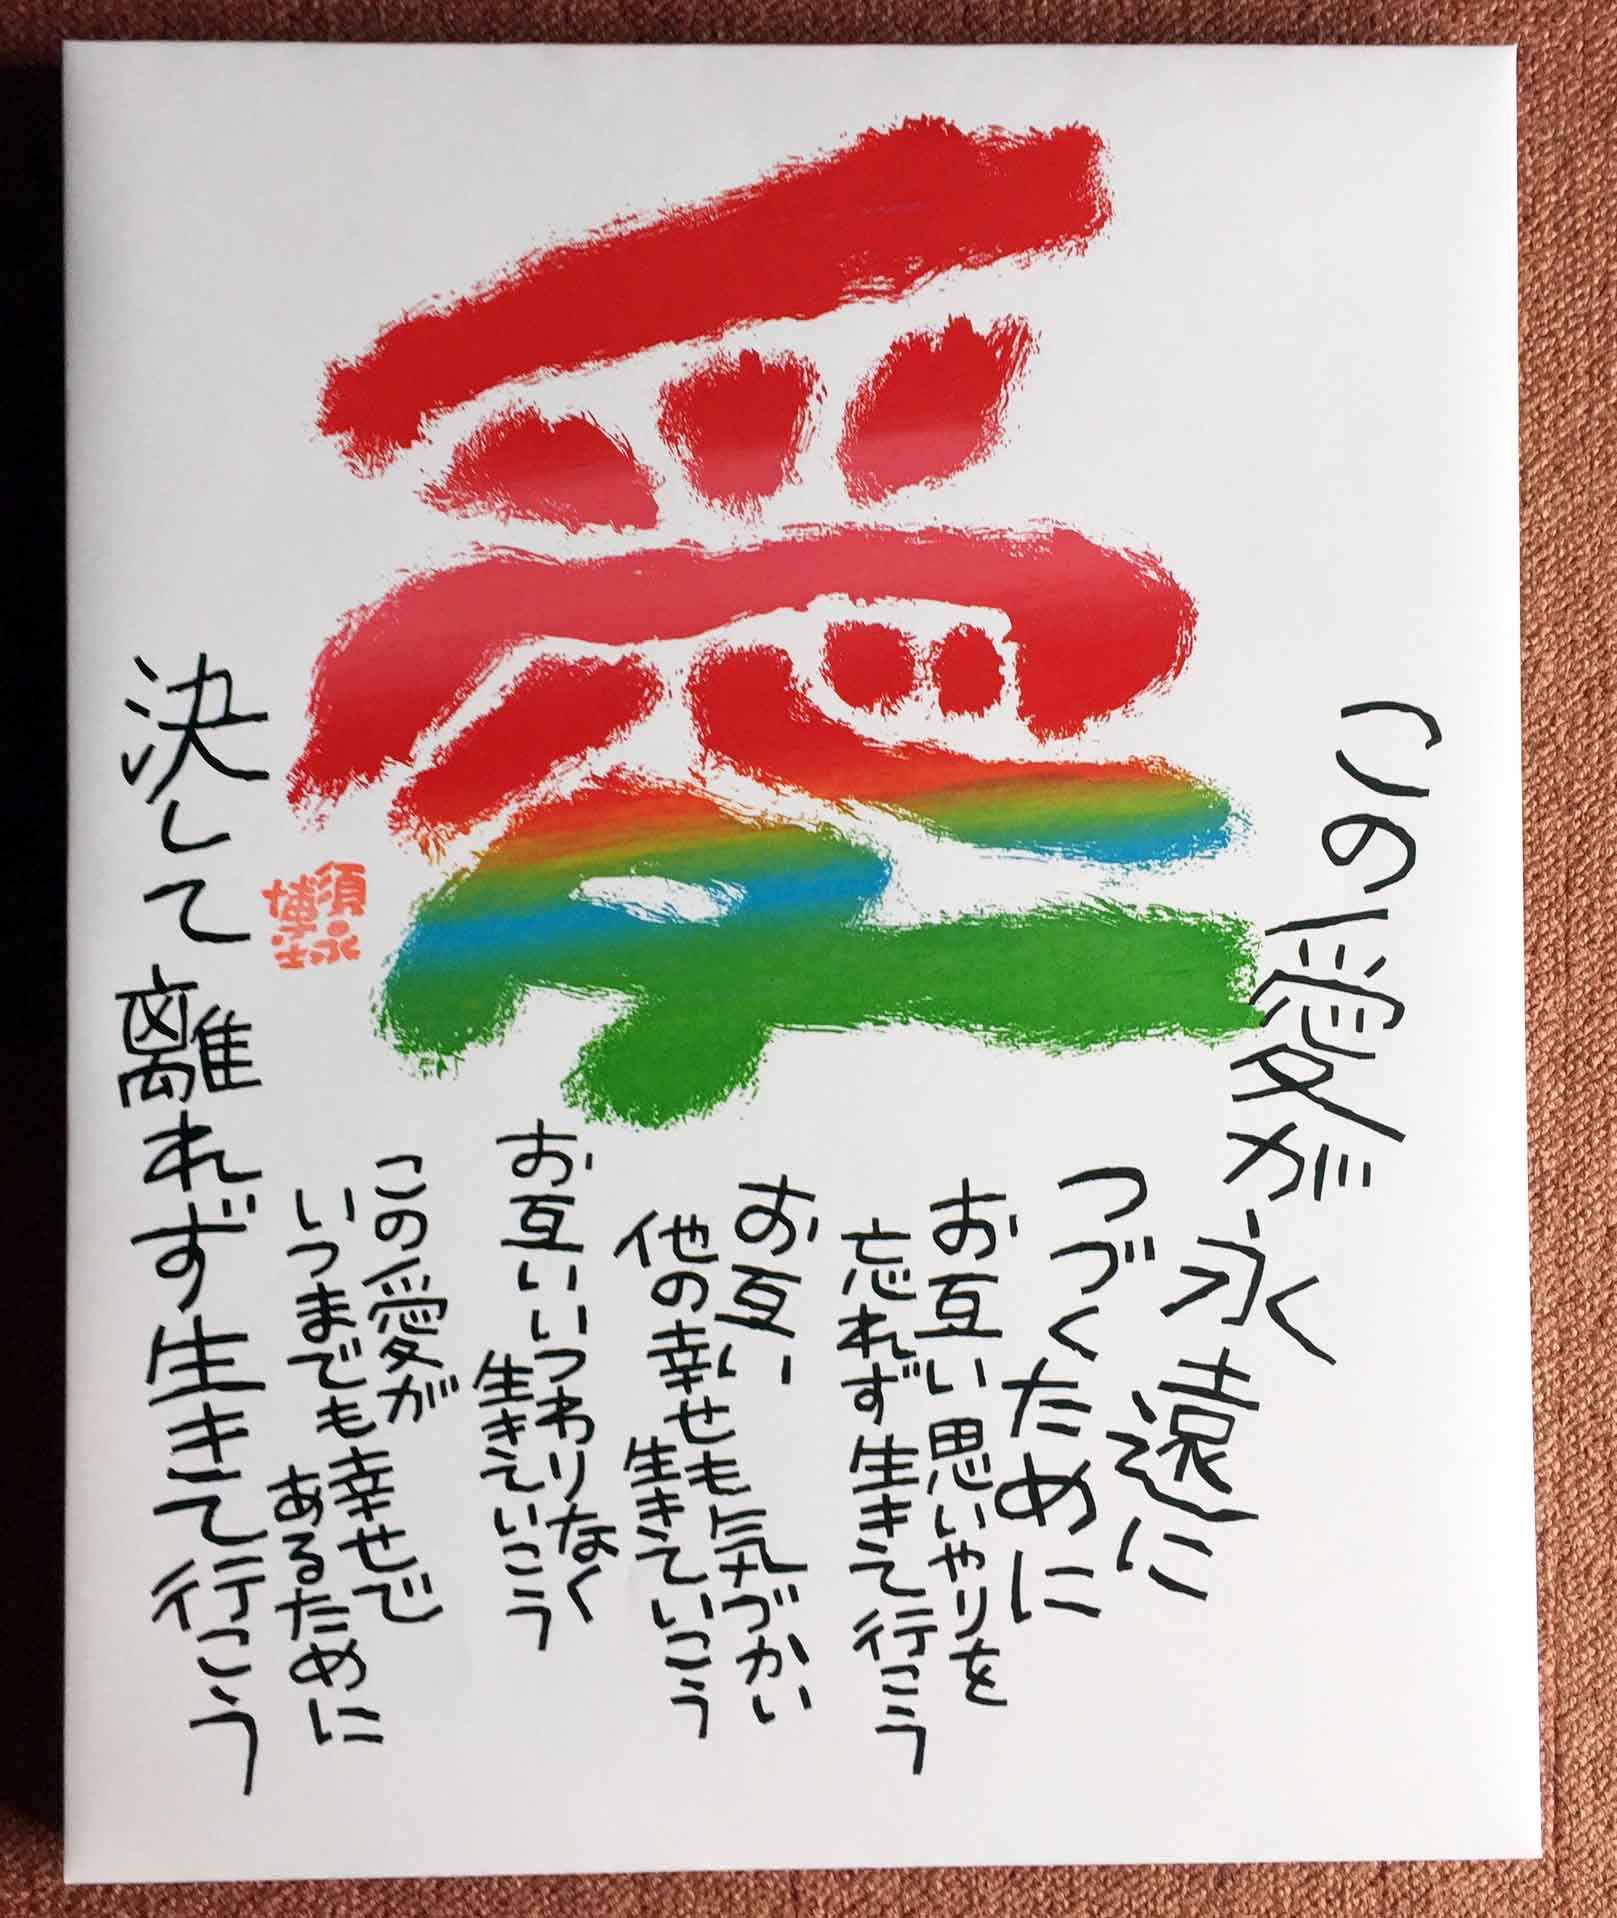 愛
この愛が永く
遠に
つづくために
お互い思いやりを
忘れず生きて行こう
お互い
他の幸せも気づかい
生きていこう
お互いいつわりなく
生きていこう
この愛が
いつまでも幸せで
あるために
決して離れず生きて行こう
須永
博士